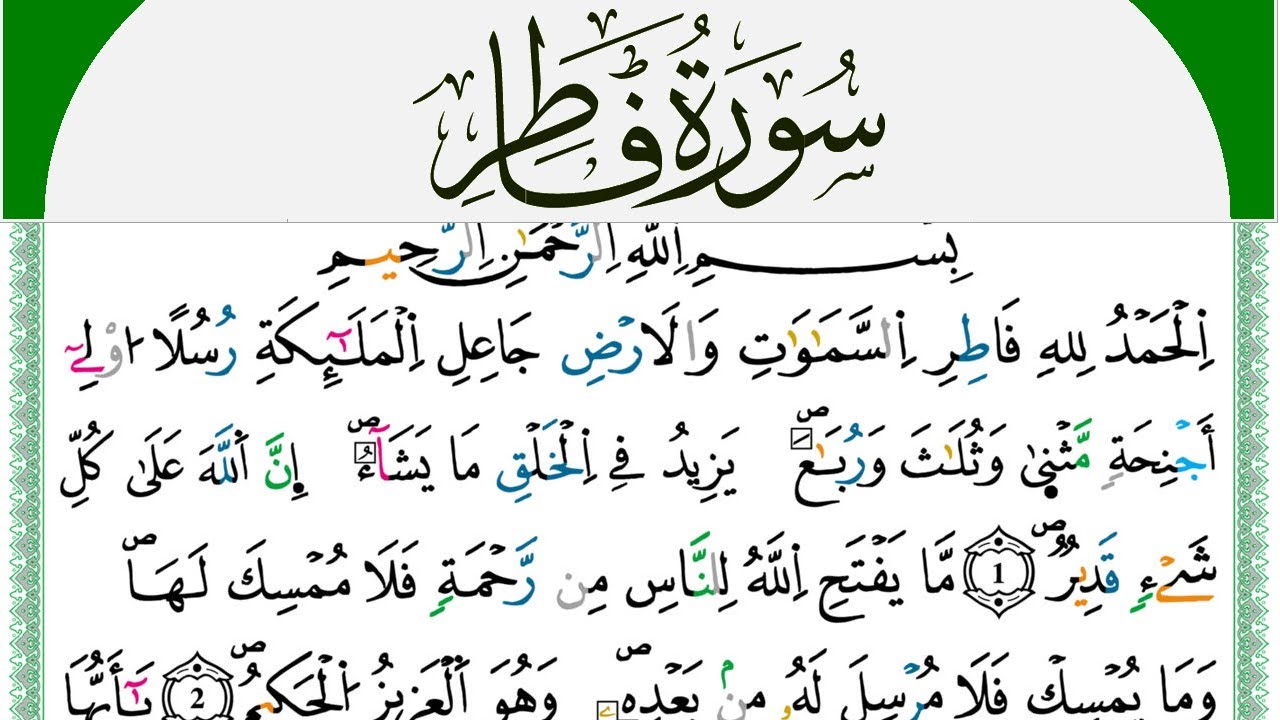 سُورَةُ فَاطِرٍ
بِسْمِ اِ۬للَّهِ اِ۬لرَّحْمَٰنِ اِ۬لرَّحِيمِ
اِ۬لْحَمْدُ لِلهِ فَاطِرِ اِ۬لسَّمَٰوَٰتِ وَالَارْضِ جَاعِلِ اِ۬لْمَلَٰٓئِكَةِ رُسُلًا ا۟وْلِےٓ
أَجْنِحَةٖ مَّثْن۪ىٰ وَثُلَٰثَ وَرُبَٰعَۖ يَزِيدُ فِے اِ۬لْخَلْقِ مَا يَشَآءُۖ إِنَّ اَ۬للَّهَ عَلَىٰ كُلِّ
شَےْءٖ قَدِيرٞۖ 1 مَّا يَفْتَحِ اِ۬للَّهُ لِلنَّاسِ مِن رَّحْمَةٖ فَلَا مُمْسِكَ لَهَاۖ
وَمَا يُمْسِكْ فَلَا مُرْسِلَ لَهُۥ مِنۢ بَعْدِهِۦۖ وَهُوَ اَ۬لْعَزِيزُ اُ۬لْحَكِيمُۖ 2 يَٰٓأَيُّهَا